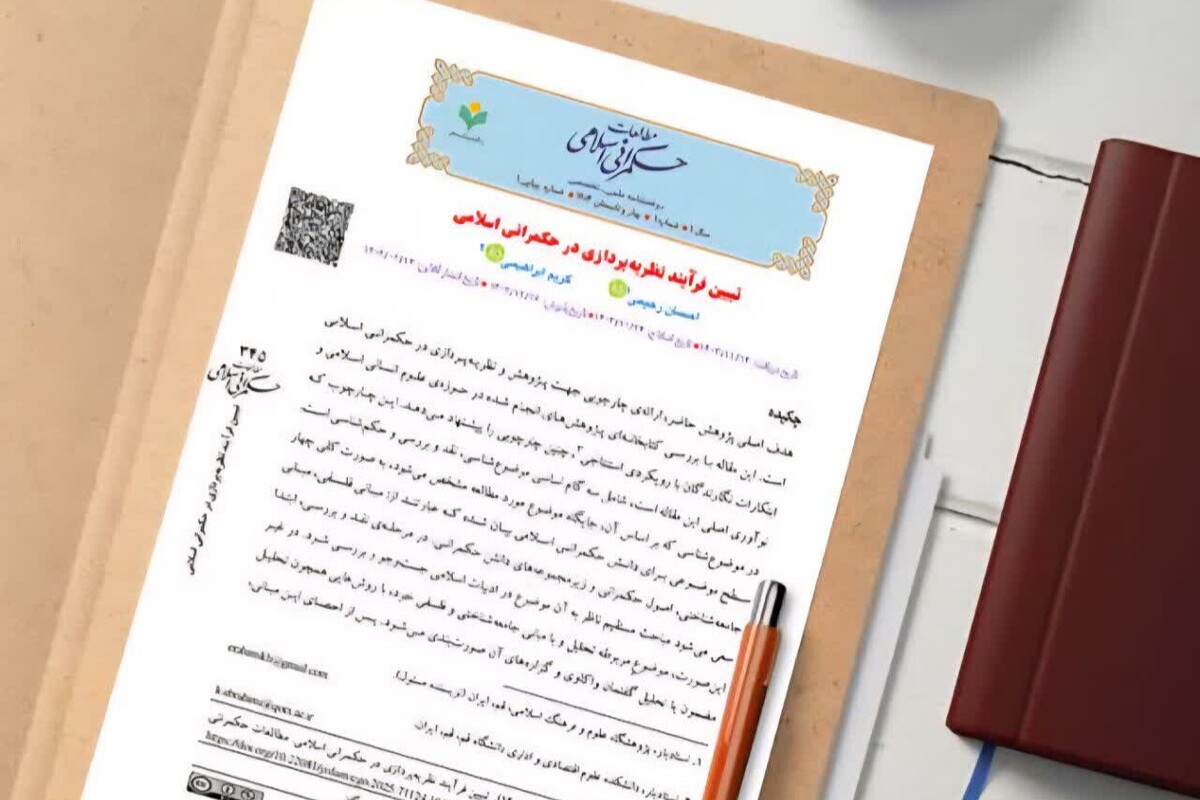 مطالعات
حکمرانی اسلامی
دوفصلنامه علمی - تخصصی
سال ۱ • شماره ۱ • بهار و تابستان ۱۴۰۴ • شماره پیاپی ۱
تبیین فرآیند نظریه‌پردازی در حکمرانی اسلامی
احسان رحیمی ۱ کریم ابراهیمی ۲
تاریخ دریافت: ۱۴۰۳/۱۱/۱۲ • تاریخ اصلاح: • تاریخ پذیرش: • تاریخ انتشار آنلاین:
چکیده
هدف اصلی پژوهش حاضر، ارائه‌ی چارچوبی جهت پژوهش و نظریه‌پردازی در حکمرانی اسلامی
است. این مقاله با بررسی کتابخانه‌ای پژوهش‌های انجام شده در حوزه‌ی علوم انسانی اسلامی و
ابتکارات نگارندگان با رویکردی استنتاجی، چنین چارچوبی را پیشنهاد می‌دهد. این چارچوب که
نوآوری اصلی این مقاله است، شامل سه گام اساسی موضوع‌شناسی، نقد و بررسی و حکم‌شناسی است.
در موضوع‌شناسی که بر اساس آن، جایگاه موضوع مورد مطالعه مشخص می‌شود، به صورت کلی چهار
سطح موضوعی برای دانش حکمرانی اسلامی بیان شده که عبارتند از: مبانی فلسفی، مبانی
جامعه‌شناختی، اصول حکمرانی و زیرمجموعه‌های دانش حکمرانی. در مرحله‌ی نقد و بررسی، ابتدا
سعی می‌شود مباحث مستقیم ناظر به آن موضوع در ادبیات اسلامی جستجو و بررسی شود. در غیر
این صورت، موضوع مربوطه تحلیل و با مبانی جامعه‌شناختی و فلسفی خود، با روش‌هایی همچون تحلیل
مضمون یا تحلیل گفتمان واکاوی و گزاره‌های آن صورت‌بندی می‌شود. پس از احصای این مبانی،
۱. استادیار، پژوهشگاه علوم و فرهنگ اسلامی، قم، ایران (نویسنده مسئول).
۲. استادیار، دانشکده علوم اقتصادی و اداری دانشگاه قم، قم، ایران.
تبیین فرآیند نظریه‌پردازی در حکمرانی اسلامی. مطالعات حکمرانی
۳۴۵
مطالعات
حکمرانی اسلامی
تبیین فرآیند نظریه‌پردازی در حکمرانی اسلامی